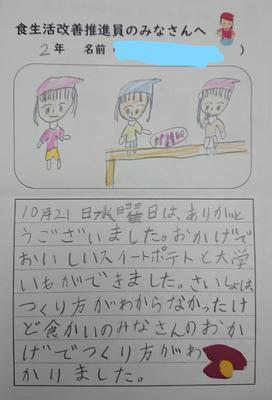 食生活改善推進員のみなさんへ
2年 名前( )
10月21日水曜日は、ありがと
うございました。おかげで
おいしいスイートポテトと大学
いもができました。さいしょは、
つくり方がわからなかったけ
ど食かいのみなさんのおか
げでつくり方がわ
かりました。